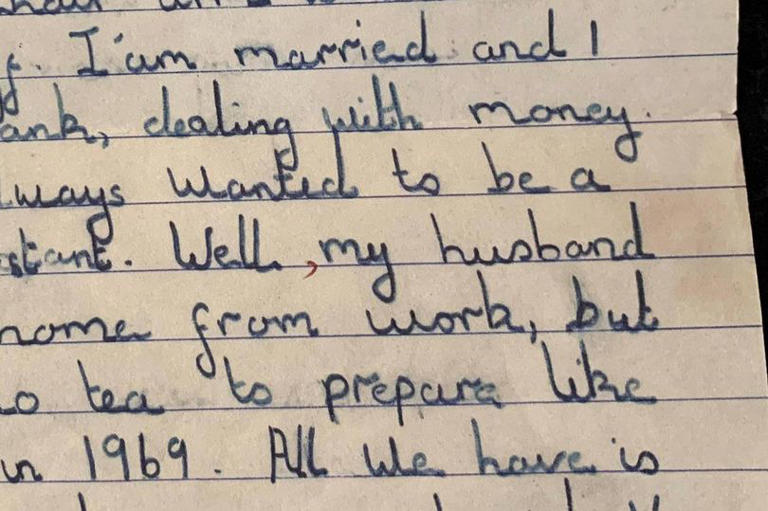 I'am married and I
ank, dealing with money.
ways wanted to be a
stant. Well, my husband
home from work, but
o tea to prepare like
in 1969. All we have is